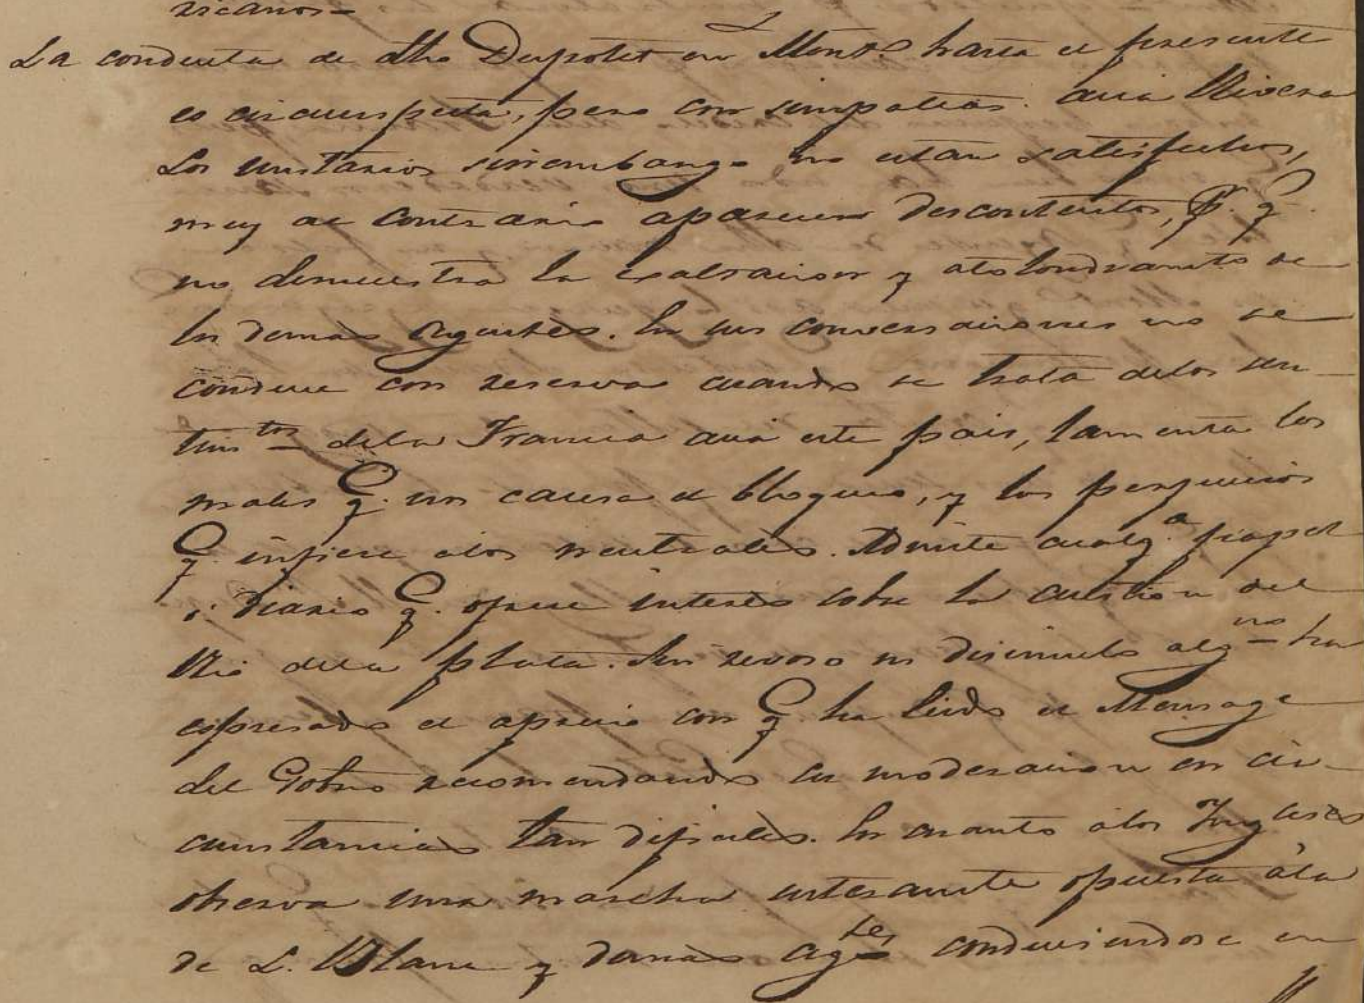 ricanos=
La conducta de Mr. Dupotet en Montº hasta el presente
es circunspecta, pero con simpatias acia Rivera
Los unitarios sinembargo no estan satisfechos,
muy al contrario aparecen descontentos, P. q.
no demuestra la exaltacion y atolondramto de
los demas agentes. En sus conversaciones no se
conduce con reserva cuando se trata delos sen-
timtos dela Francia acia este pais, lamenta los
males q. nos causa el bloqueo, y los perjuicios
q. infiere alos neutrales. Admite cualqa papel
ó diario q. ofrece interes sobre la cuestion del
Rio dela plata. Sin reboso ni disimulo algno ha
espresado el aprecio con q. ha leido el Mensage
del Gobno recomendando su moderacion en cir-
cunstancias tan dificiles. En cuanto alos Ingleses
observa una marcha enteramte opuesta ála
de L. Blanc y demas agtes conduciendose en